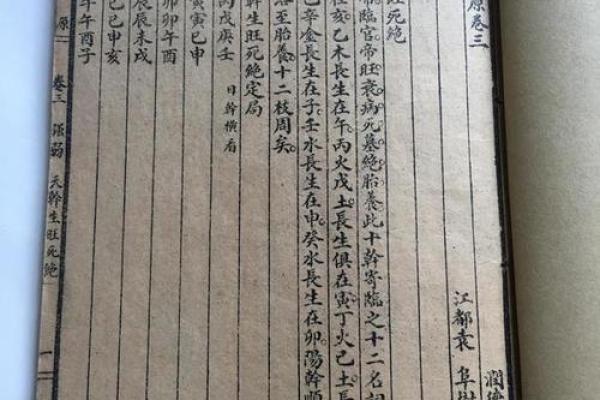 原卷三
潤德
江都袁 阜樹
旺死絕
臨官帝旺衰病死墓絕胎養此十幹寄臨之十二名詞
亥乙木長生在午丙火戊土長生俱在寅丁火己土長
辛金長生在子壬水長生在申癸水長生在卯陽幹順
至胎養十二枝周矣
幹生旺死絕定局
丙戊庚壬 日幹橫看
寅寅巳申
卯卯午酉
辰辰未戌
巳巳申亥
午午酉子
原 卷三 强弱 天幹生旺死絕 一